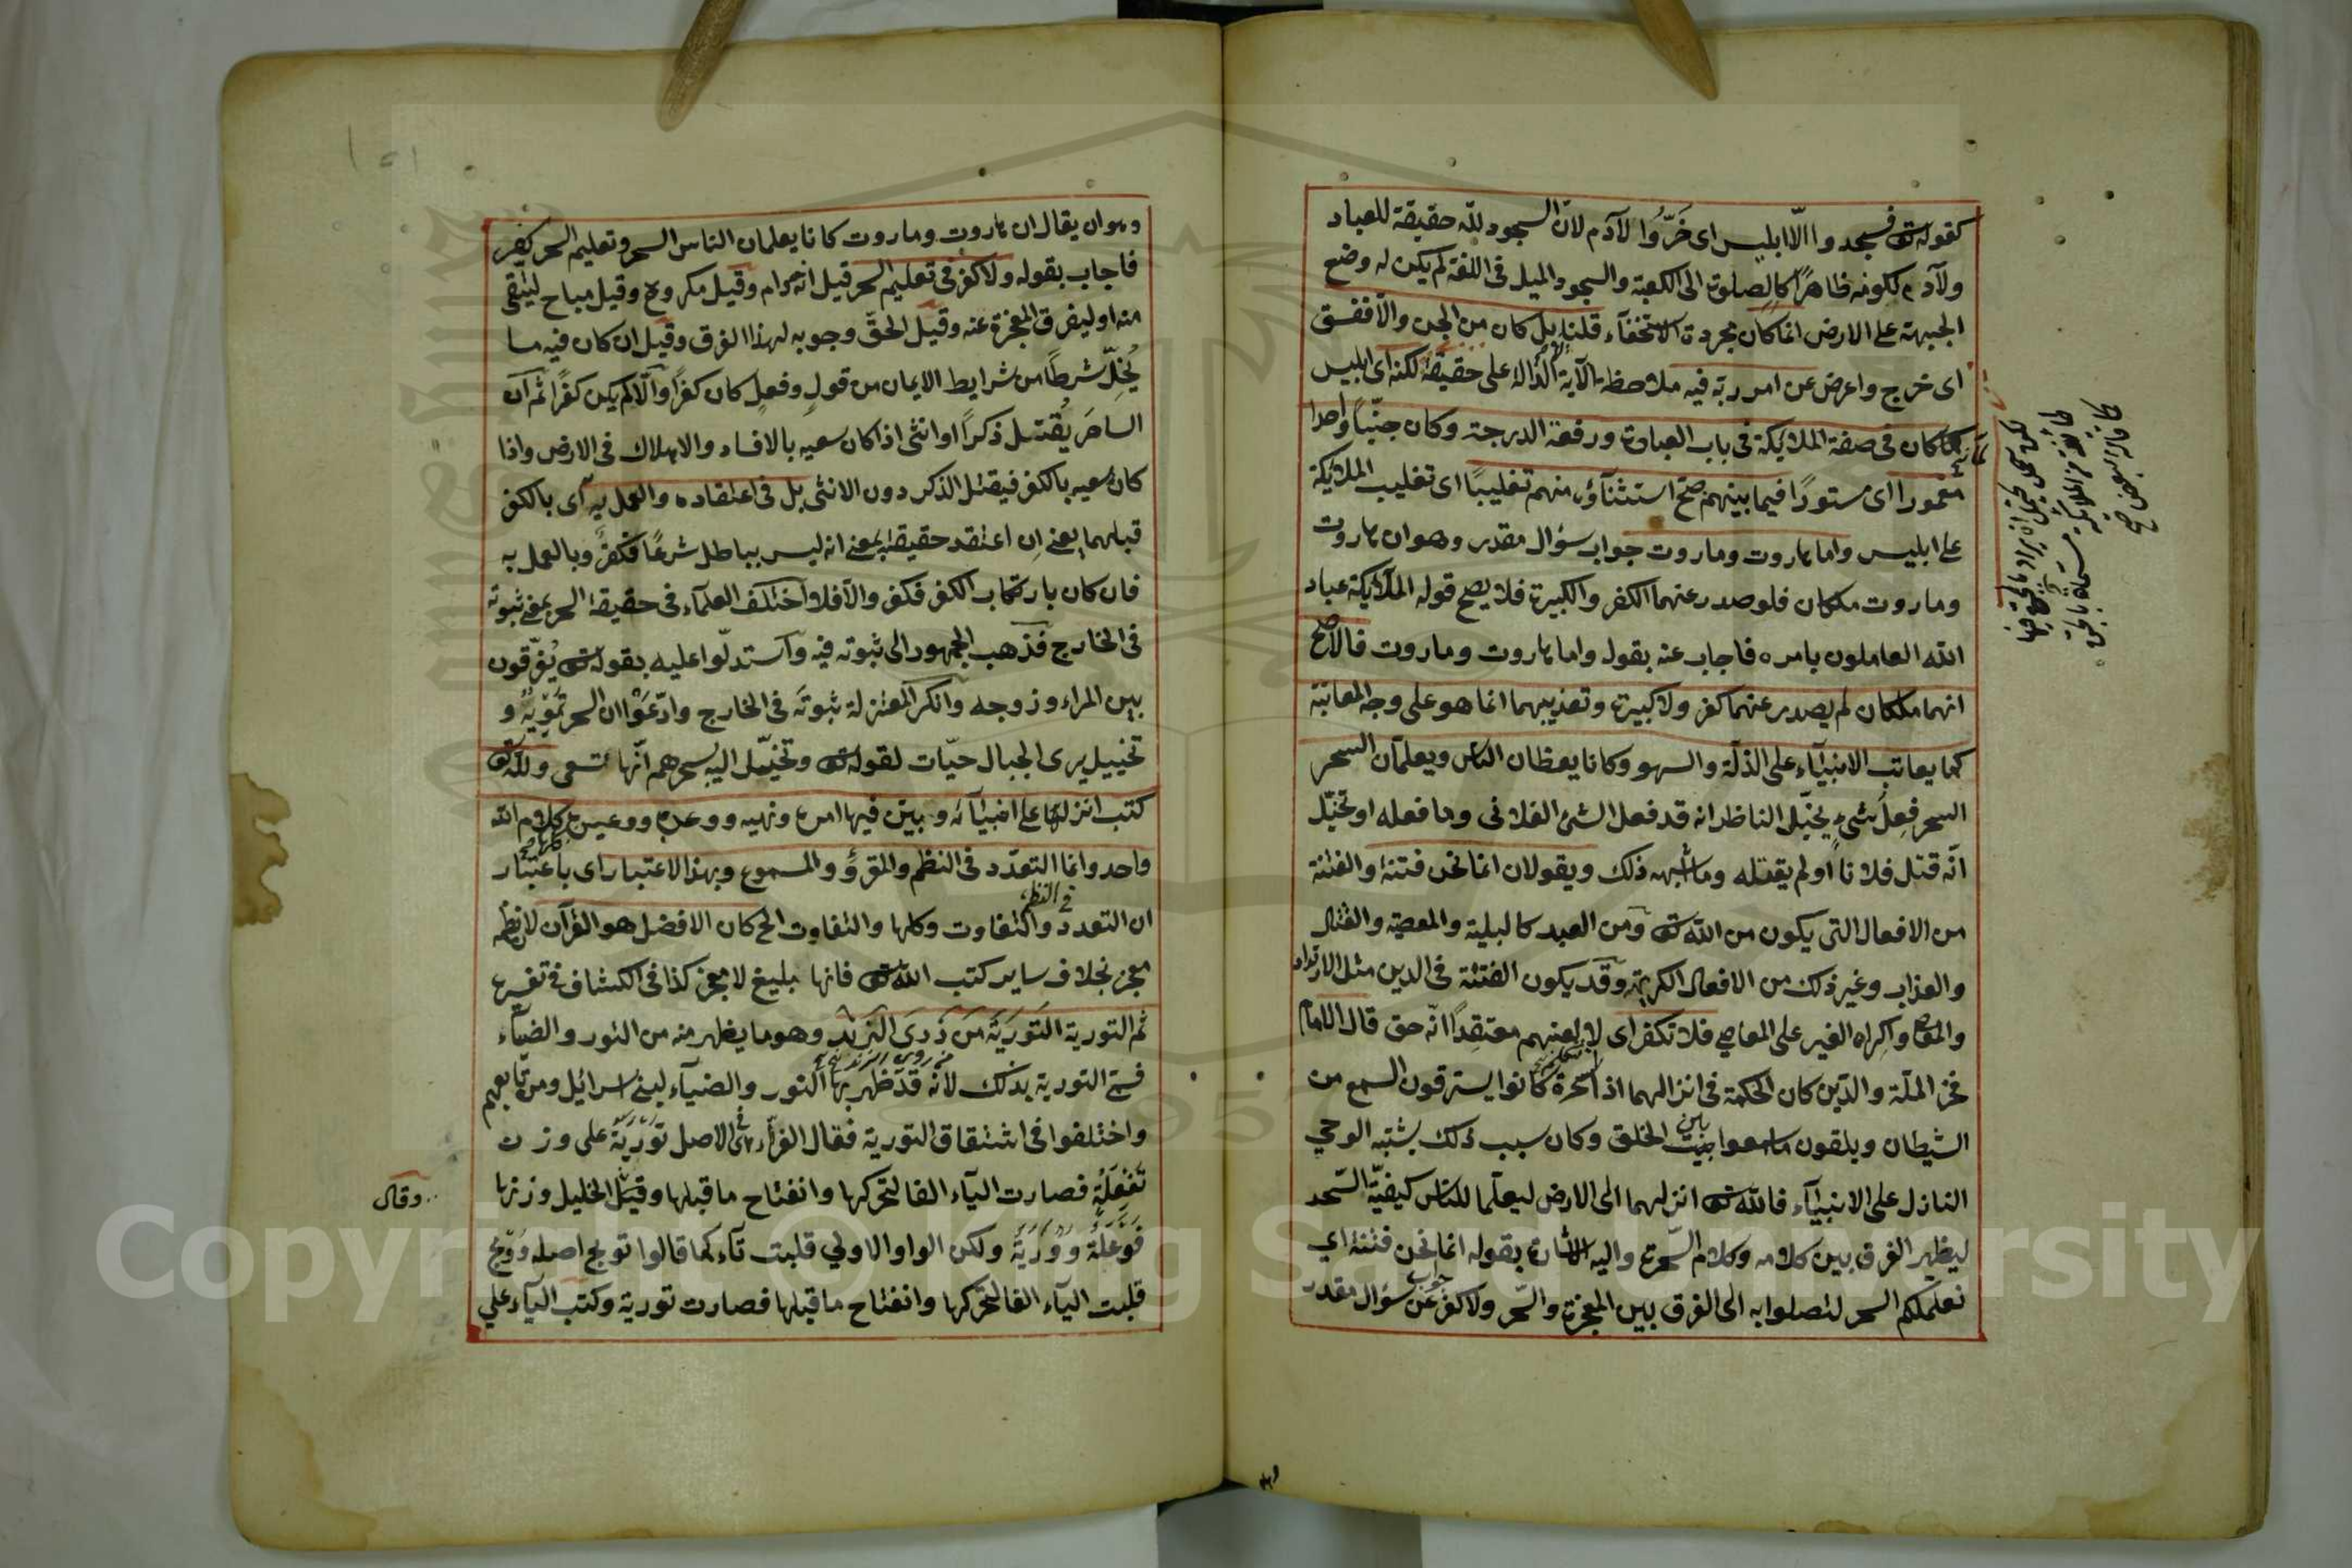 كقوله تع فسجدوا الّا ابليس اى خَرُّوا لآدم لانّ السجود للّه حقيقة للعباد
ولآدم لكونه ظاهرًا كالصلوة الى الكعبة والسجود الميل فى اللغة لم يكن له وضع
الجبهة على الارض انما كان مجردة الاستخفاء قلنا بل كان من الجن والّا ففسق
اى خرج واعرض عن امر ربه فيه ملاحظة الآية الدّالة على حقيقة لكنه اى ابليس
لما كان فى صفة الملائكة فى باب العبادة ورفعة الدرجة وكان جنّيّا واحدا
مغمورا اى مستورًا فيما بينهم صحّ استثناؤه منهم تغليبًا اى تغليب الملائكة
على ابليس واما هاروت وماروت جواب سؤال مقدر وهو ان هاروت
وماروت ملكان فلو صدر عنهما الكفر والكبيرة فلا يصح قوله الملائكة عباد
الله العاملون بامره فاجاب عنه بقوله واما هاروت وماروت فالاصح
انهما ملكان لم يصدر عنهما كفر ولا كبيرة وتعذيبهما انما هو على وجه المعاتبة
كما يعاتب الانبياء على الذلّة والسهو وكانا يعظان الناس ويعلّمان السحر
السحر فعلُ شىءٍ يخيّل الناظر انه قد فعل الشئ الفلانى وما فعله او تخيّل
انّه قتل فلانا او لم يقتله وما شبه ذلك ويقولان انما نحن فتنة والفتنة
من الافعال التى يكون من الله تع ومن العبد كالبلية والمعصية والقتال
والعذاب وغير ذلك من الافعال الكريهة وقد يكون الفتنة فى الدين مثل الارتداد
والمعاصى واكراه الغير على المعاصى فلا تكفر اى لا معتقدًا انّه حق قال الامام
فخر الملّة والدّين كان الحكمة فى انزالهما اذ السحرة كانوا يسترقون السمع من
الشيطان ويلقون ما سمعوا بين الخلق وكان سبب ذلك يشتبه الوحى
النازل على الانبياء فالله تع انزلهما الى الارض ليعلّما للناس كيفيّة السّحر
ليظهر الفرق بين كلامه وكلام السّحرة واليه الاشارة بقوله انما نحن فتنة اى
نعلمكم السحر لتصلوا به الى الفرق بين المعجزة والسّحر ولا كفر جواب عن سؤال مقدر
وهو ان يقال ان هاروت وماروت كانا يعلمان الناس السحر وتعليم السحر كفر
فاجاب بقوله ولا كفر فى تعليم السحر قيل انه حرام وقيل مكروه وقيل مباح ليتقى
منه او ليفرق المعجزة عنه وقيل الحقّ وجوبه لهذا الفرق وقيل ان كان فيه ما
يُخِلّ شرطًا من شرايط الايمان من قول وفعل كان كفرًا والّا لم يكن كفرًا ثم ان
الساحر يُقتل ذكرًا او انثى اذا كان سعيه بالافساد والاهلاك فى الارض واذا
كان سعيه بالكفر فيقتل الذكر دون الانثى بل فى اعتقاده والعمل به اى بالكفر
قبلهما يعنى ان اعتقد حقيقة بمعنى انه ليس بباطل شرعًا فكفر وبالعمل به
فان كان بارتكاب الكفر فكفر والّا فلا اختلف العلماء فى حقيقة السحر بمعنى ثبوته
فى الخارج فذهب الجمهور الى ثبوته فيه واستدلّوا عليه بقوله تع يُفرّقون
بين المراء وزوجه وانكر المعتزلة ثبوتَه فى الخارج وادّعَوْا ان السحر تمويه و
تخييل يرى الجبال حيّات لقوله تع وتخيّل اليه بسحرهم انّها تسعى ولله تع
كتب انزلها على انبيائه وبيّن فيها امره ونهيه ووعده ووعيده كلها كلام الله
واحد وانما التعدّد فى النظم والمقرؤّ والمسموع وبهذا الاعتبار اى باعتبار
ان التعدد والتفاوت فى النظم وكلها والتفاوت الح كان الافضل هو القرآن لان نظمه
معجز بخلاف ساير كتب الله تع فانها بليغ لا معجز كذا فى الكشاف فى تفسيره
ثم التورية التورية من وَرى الزند وهو ما يظهر منه من النور والضياء
فسمّى التورية بذلك لانه قد ظهر بها النور والضياء لبنى اسرائيل ومن تابعهم
واختلفوا فى اشتقاق التورية فقال الفرّاء هى فى الاصل تَوْرِيَة على وزن
تَفْعِلَة فصارت الياء الفا لتحركها وانفتاح ما قبلها وقيل الخليل وزنها
فَوْعَلَة وَوْرَيَة ولكن الواو الاولى قلبت تاء كما قالوا تولج اصله وَوْلج
قلبت الياء الفا لتحركها وانفتاح ما قبلها فصارت تورية وكتب الياء على
وقال
Copyright © King Saud University
1957